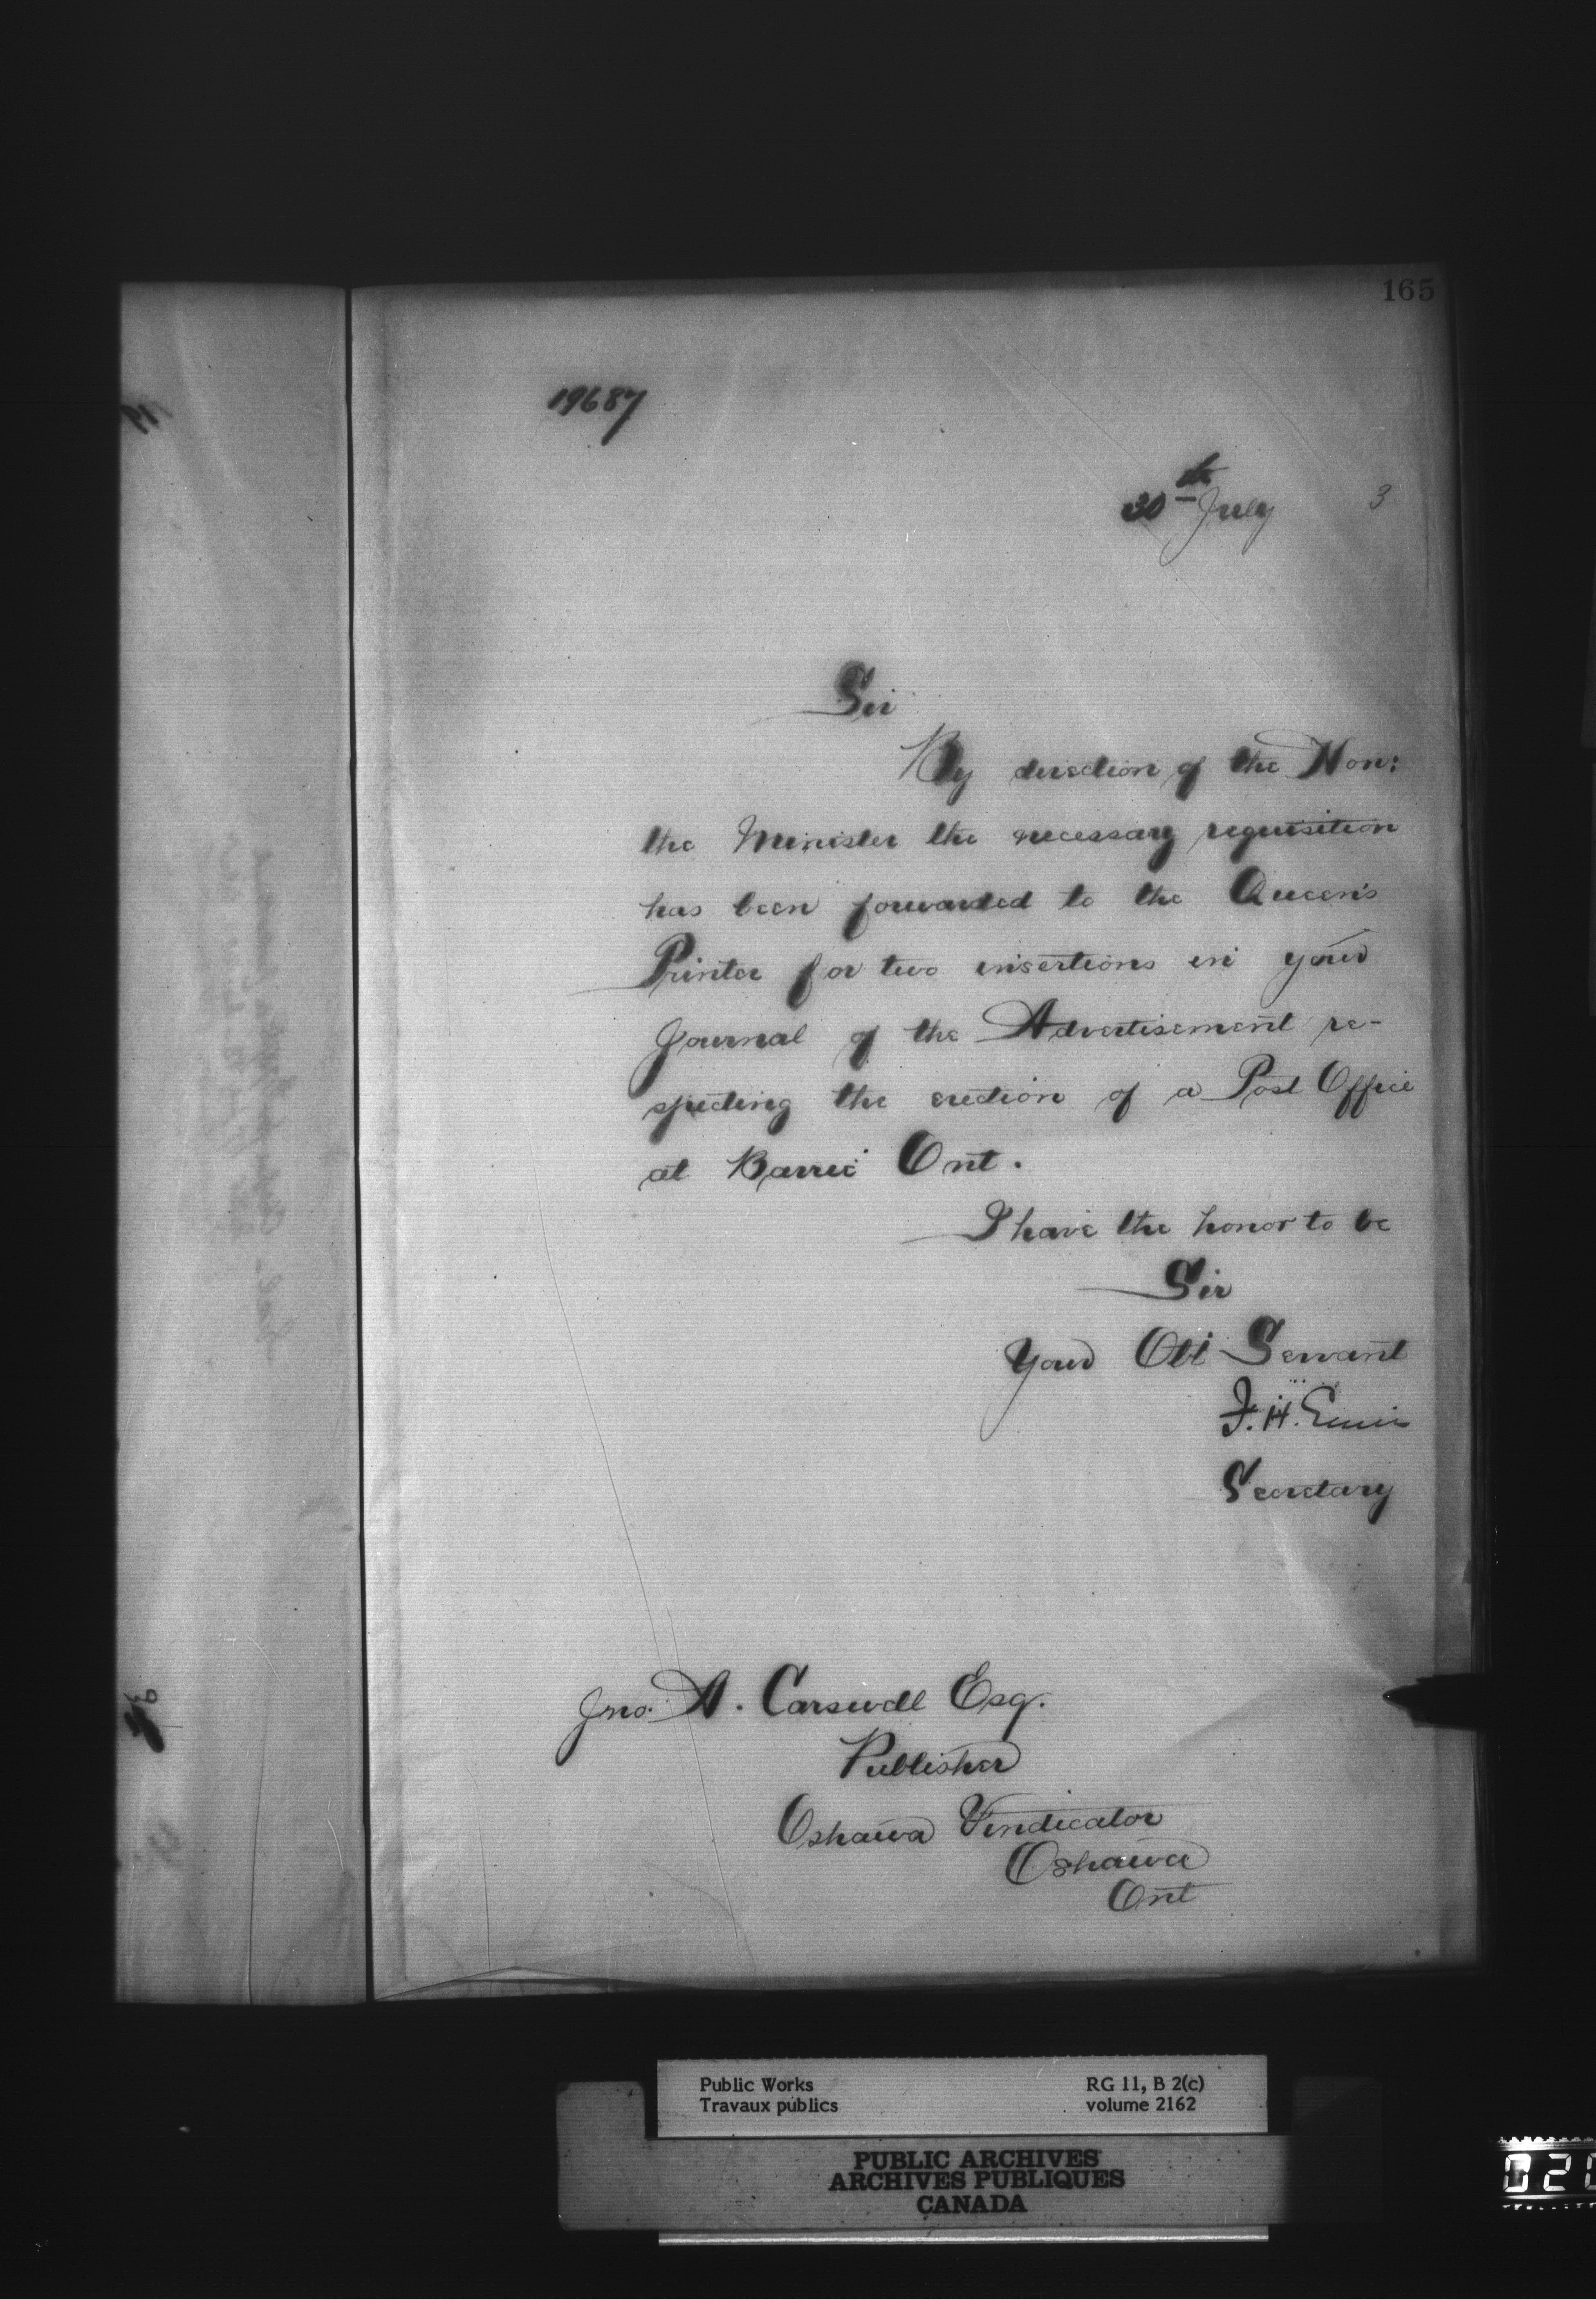 165
19687
30th July 3
Sir
By direction of the Hon:
the Minister the necessary requisition
has been forwarded to the Queen's
Printer for two insertions in your
Journal of the Advertisement re-
specting the erection of a Post Office
at Barrie Ont.
I have the honor to be
Sir
Your Obt Servant
F. H. Ennis
Secretary
Jno. A. Carswell Esq.
Publisher
Oshawa Vindicator
Oshawa
Ont
Public Works RG 11, B 2(c)
Travaux publics volume 2162
PUBLIC ARCHIVES
ARCHIVES PUBLIQUES
CANADA
020